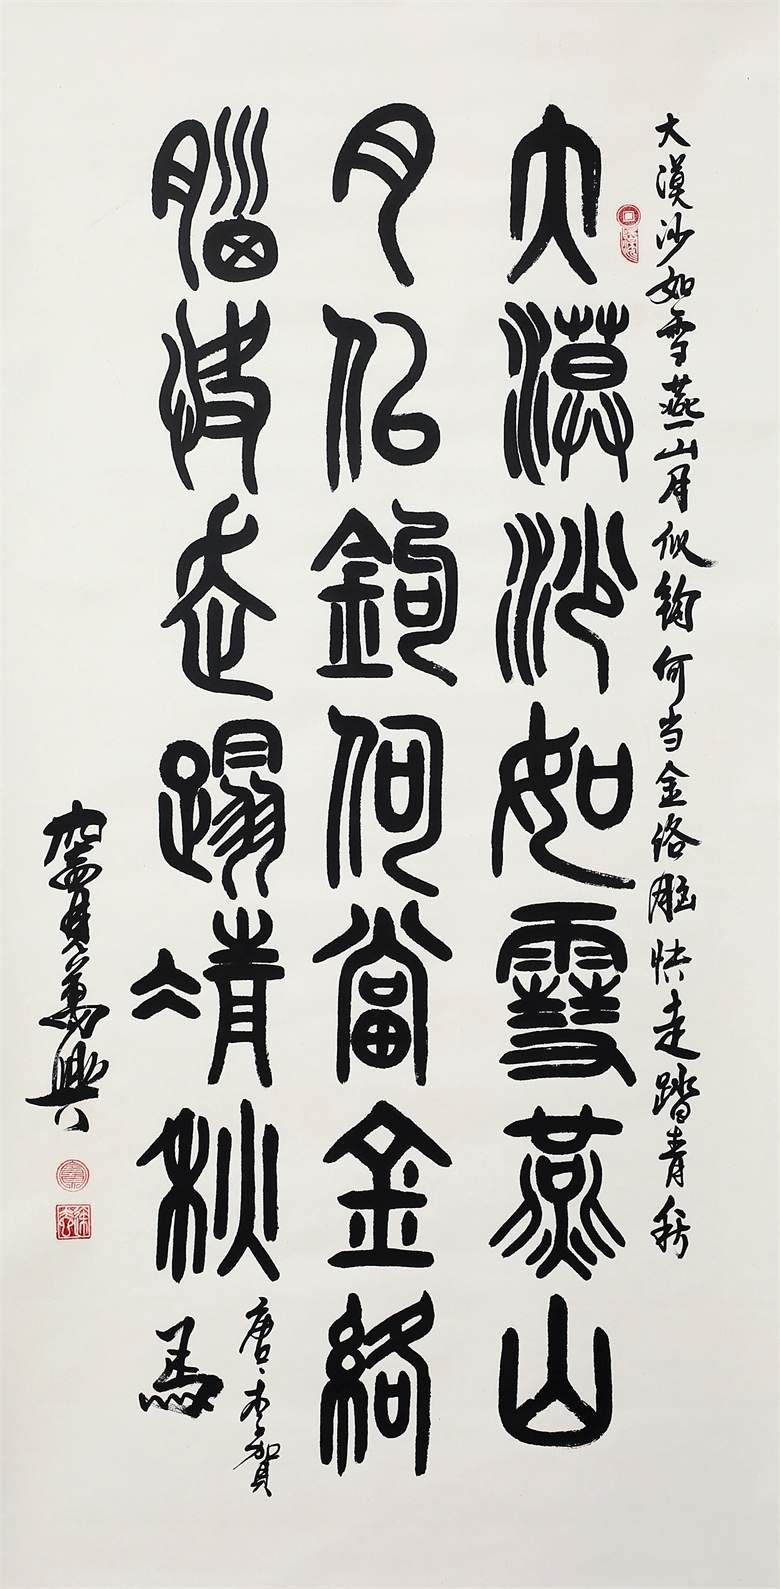 大漠沙如雪燕山月似鉤何当金络脑快走踏青秋
大漠沙如雪燕山
月似鉤何當金絡
腦快走蹋凊秋
唐、李賀
馬
萬興